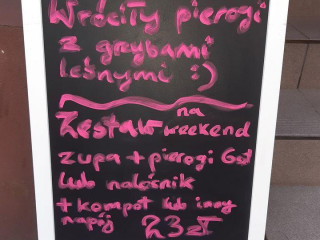 Wróciły pierogi
z grzybami
leśnymi :)
Zestaw na
weekend
zupa + pierogi 6szt
lub naleśnik
+ kompot lub inny
napój 23 zł